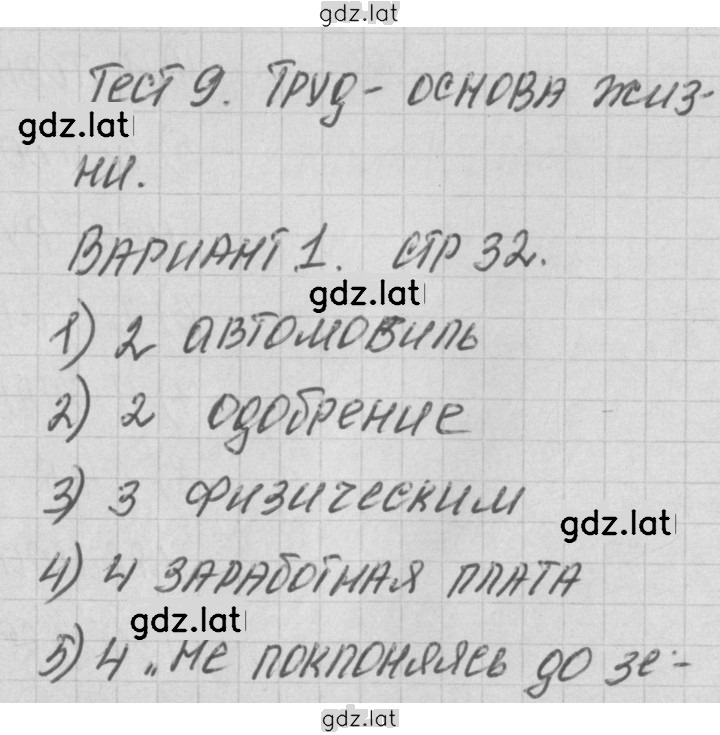 gdz.lat
Тест 9. Труд - основа жиз-
gdz.lat
ни.
Вариант 1. стр 32.
gdz.lat
1) 2 автомобиль
2) 2 одобрение
3) 3 физическим
gdz.lat
4) 4 заработная плата
gdz.lat
5) 4 „не поклоняясь до зе-
gdz.lat